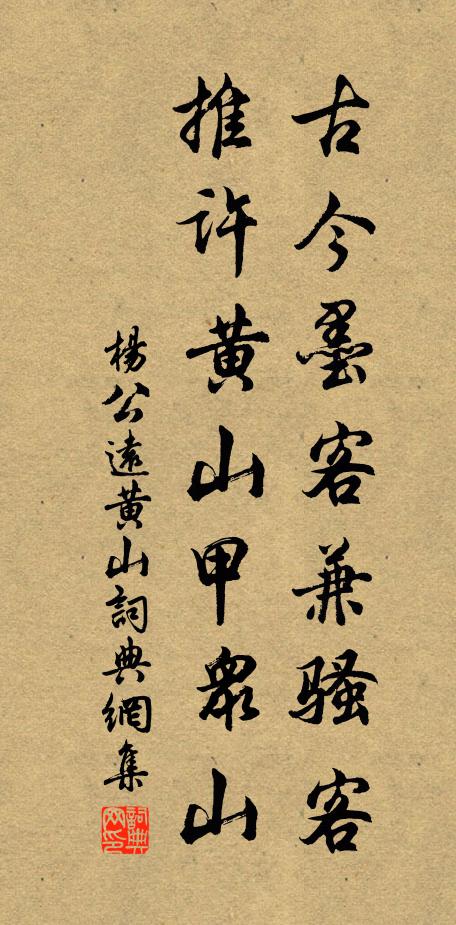 古今墨客兼騷客
推許黃山甲衆山
楊公遠黃山詞典網集
詞典网印